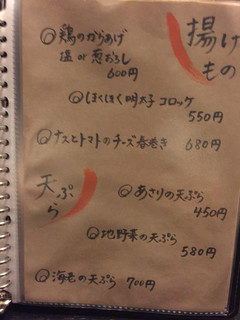 揚げもの
鶏のからあげ
塩 or 葱おろし
600円
ほくほく明太子コロッケ
550円
ナスとトマトのチーズ春巻き 680円
天ぷら
あさりの天ぷら
450円
地野菜の天ぷら
580円
海老の天ぷら 700円